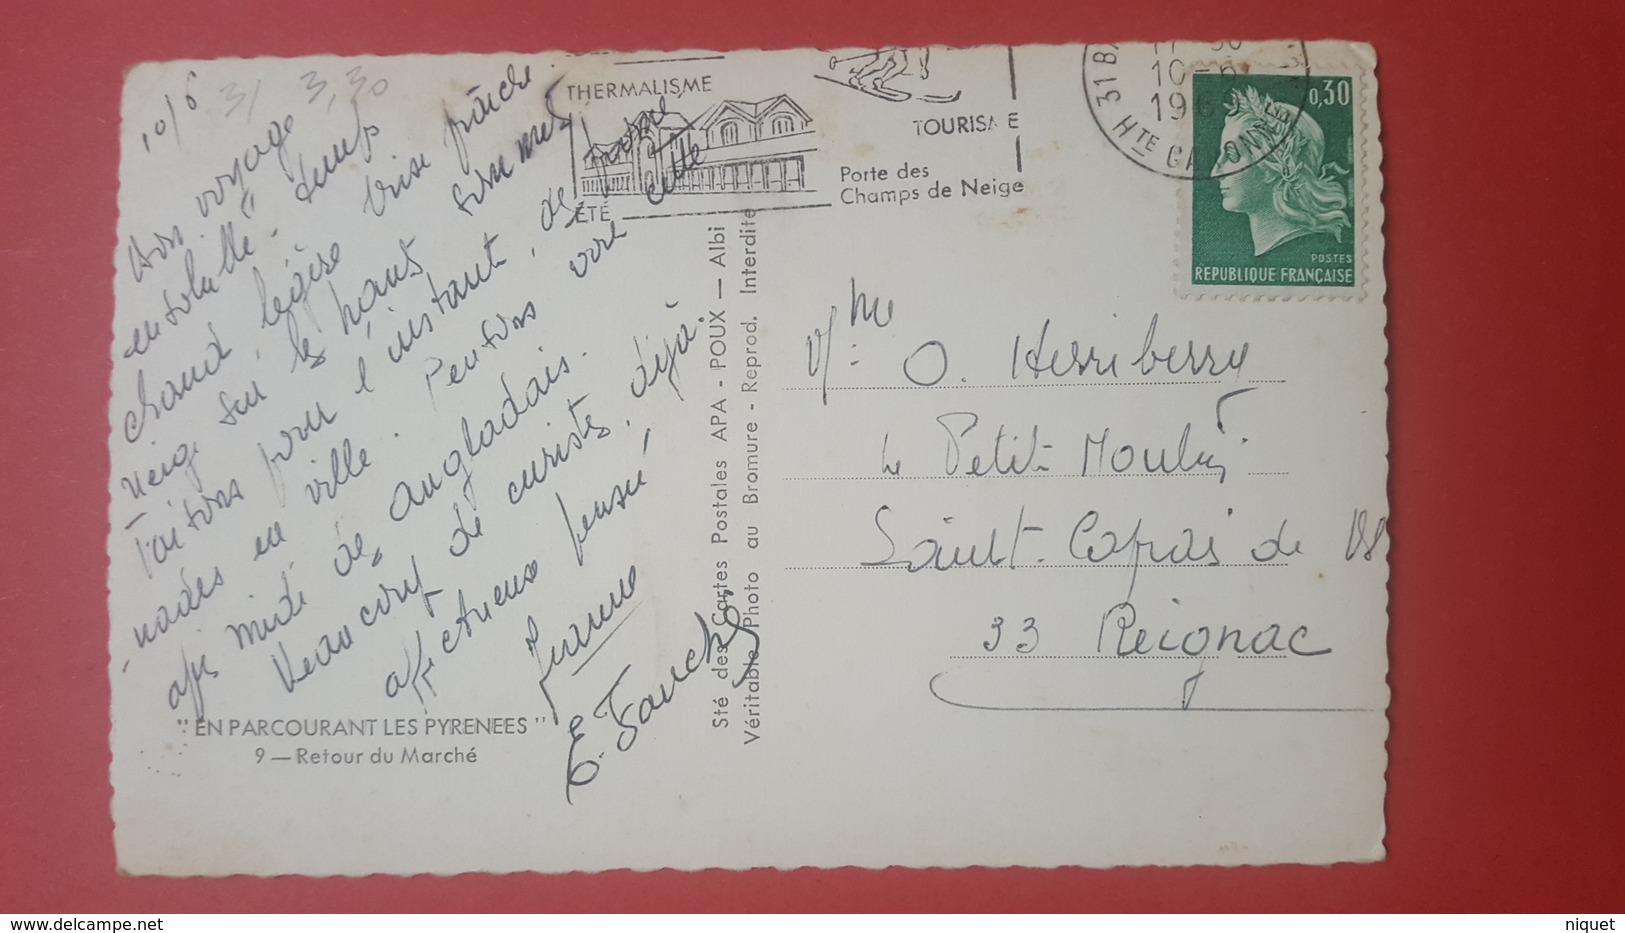 10/6
31 3,30
Bon voyage
ensoleillé - temps
chaud, légère brise fraîche.
neige sur les hauts sommets
Partons pour l'instant, de
en ville. Pensons voir cette
après midi des angladais.
Beaucoup de curistes, déjà.
affectueuse pensée
Jeanne
THERMALISME
ÉTÉ
TOURISME
Porte des
Champs de Neige
31 B
10-6
1969
HTE GARONNE
0,30
POSTES
REPUBLIQUE FRANÇAISE
Sté des Cartes Postales APA - POUX — Albi
Véritable Photo au Bromure - Reprod. Interdite
Mme O. Herriberry
Le Petit Moulin
Saint-Caprais de
33 Reignac
" EN PARCOURANT LES PYRENEES "
9 — Retour du Marché
niquet